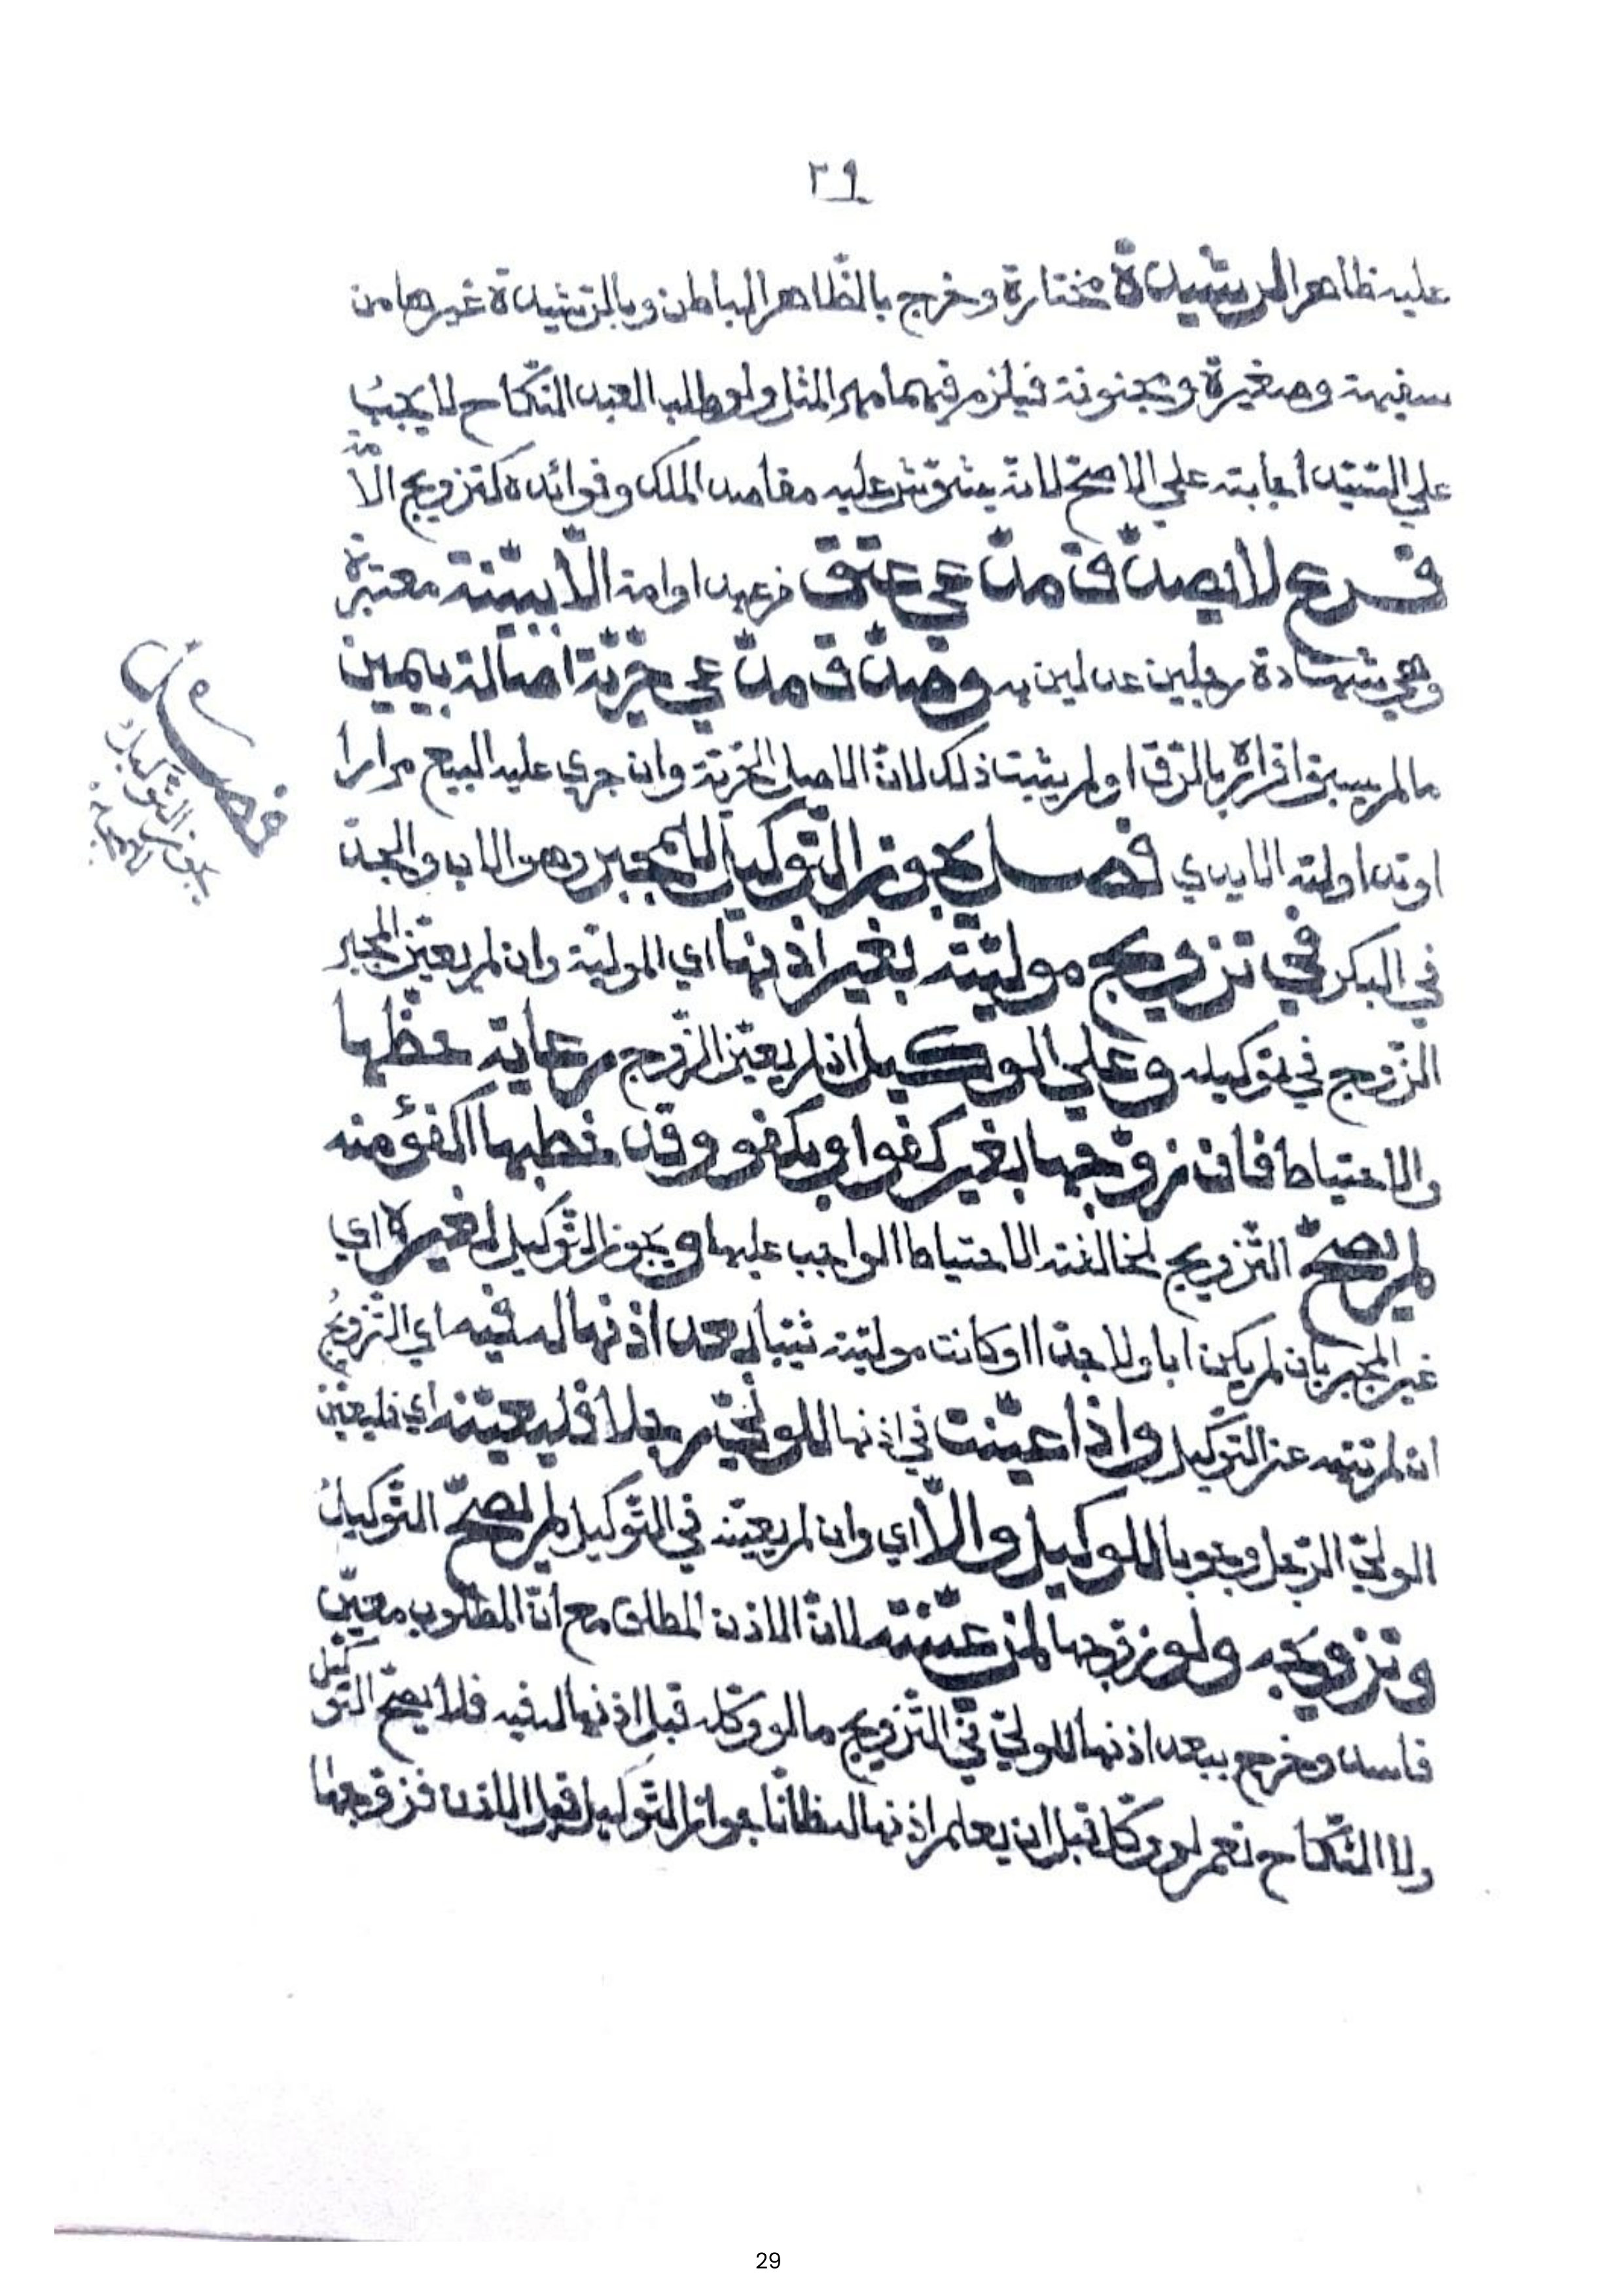 ٢٩
عليه ظاهرا لرشيدة مختارة وخرج بالظّاهر الباطن وبالرّشيدة غيرها من
سفيهة وصغيرة ومجنونة فيلزم فيهما مهر المثل ولو طلب العبد النّكاح لا يجبُ
على السّيّد اجابته علي الاصحّ لانّه يشوّش عليه مقاصد الملك وفوائده كتزويج الأمة
فرع لا يصدّق مدّعي عتق من عبد او امة الّا ببيّنة معتبرة
وهي شهادة رجلين عدلين به وصدّق مدّعي حرّيّة اصالة بيمين
ما لم يسبق اقراره بالرّق او لم يثبت ذلك لانّ الاصل الحرّيّة وان جري عليه البيع مرارا
او تداولته الايدي فصل يجوز التّوكيل للمجبر وهو الاب والجدّ
في البكر في تزويج موليّته بغير اذنها اي الموليّة وان لم يعيّن المجبر
الزّوج في توكيله وعلي الوكيل ان لم يعيّن الزّوج رعاية حظّها
والاحتياط فان زوّجها بغير كفو او بكفو وقد خطبها اكفؤ منه
لم يصحّ التّزويج لمخالفته الاحتياط الواجب عليها ويجوز التّوكيل لغيره اي
غير المجبر بان لم يكن ابا ولا جدّا او كانت موليّته ثيّبا بعد اذنها له فيه اي التّزويجُ
ان لم تنهه عن التّوكيل واذا عيّنت في اذنها للوليّ رجلا فليعيّنه اي فليعيّن
الوليّ الرّجل وجوبا للوكيل والّا اي وان لم يعيّنه في التّوكيل لم يصحّ التّوكيلُ
وتزويجه ولو زوّجها لمن عيّنته لانّ الاذن المطلق مع انّ المطلوب معيّن
فاسد وخرج ببعد اذنها للوليّ في التّزويج ما لو وكّله قبل اذنها له فيه فلا يصحّ التّوكيل
ولا النّكاح نعم لو وكّل قبل ان يعلم اذنها له ظانّا جواز التّوكيل قبل الاذن فزوّجها
فصل
التوكيل
29